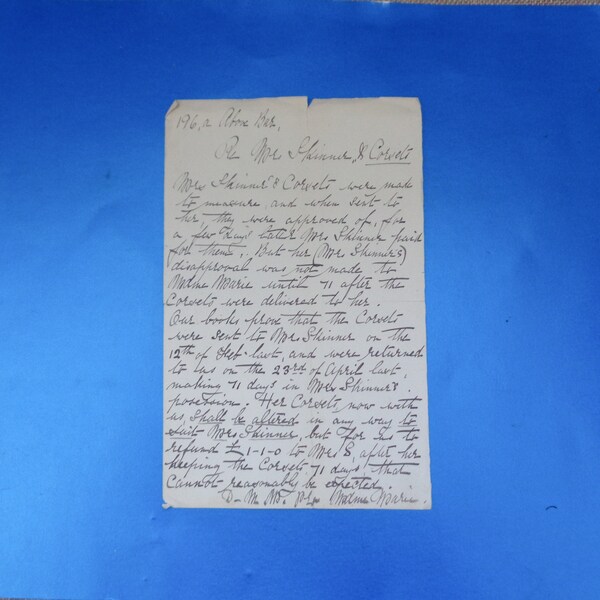 196, a Above Bar,
Re Mrs Skinner's Corsets
Mrs Skinner's Corsets were made
to measure, and when sent to
her, they were approved of, for
a few days later Mrs Skinner paid
for them. But her (Mrs Skinner's)
disapproval was not made to
Mdme Marie until 71 after the
Corsets were delivered to her.
Our books prove that the Corsets
were sent to Mrs Skinner on the
12th of Feb last, and were returned
to us on the 23rd of April last,
making 71 days in Mrs Skinner's.
posession. Her Corsets now with
us shall be altered in any way to
suit Mrs Skinner, but for us to
refund £1-1-0 to Mrs S, after her
keeping the Corsets 71 days, that
cannot reasonably be expected.
Mdme Marie.